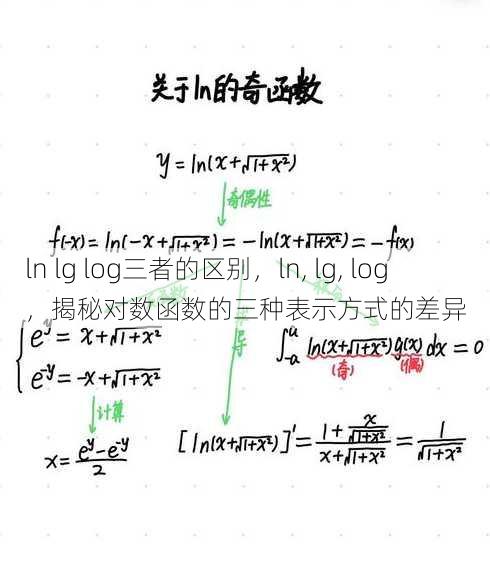 关于ln的奇函数
y=ln(x+√1+x²)
奇偶性
f(-x)=ln(-x+√1+x²)=-ln(x+√1+x²)=-f(x)
ln lg log三者的区别，ln, lg, log
，揭秘对数函数的三种表示方式的差异
e^y=x+√1+x²
e^-y=-x+√1+x²
导
∫_-a^a ln(x+√1+x²)g(x)dx=0
(奇) (偶)
计算
x=(e^y-e^-y)/2
[ln(x+√1+x²)]'=(1+x/√1+x²)/(x+√1+x²)=1/√1+x²